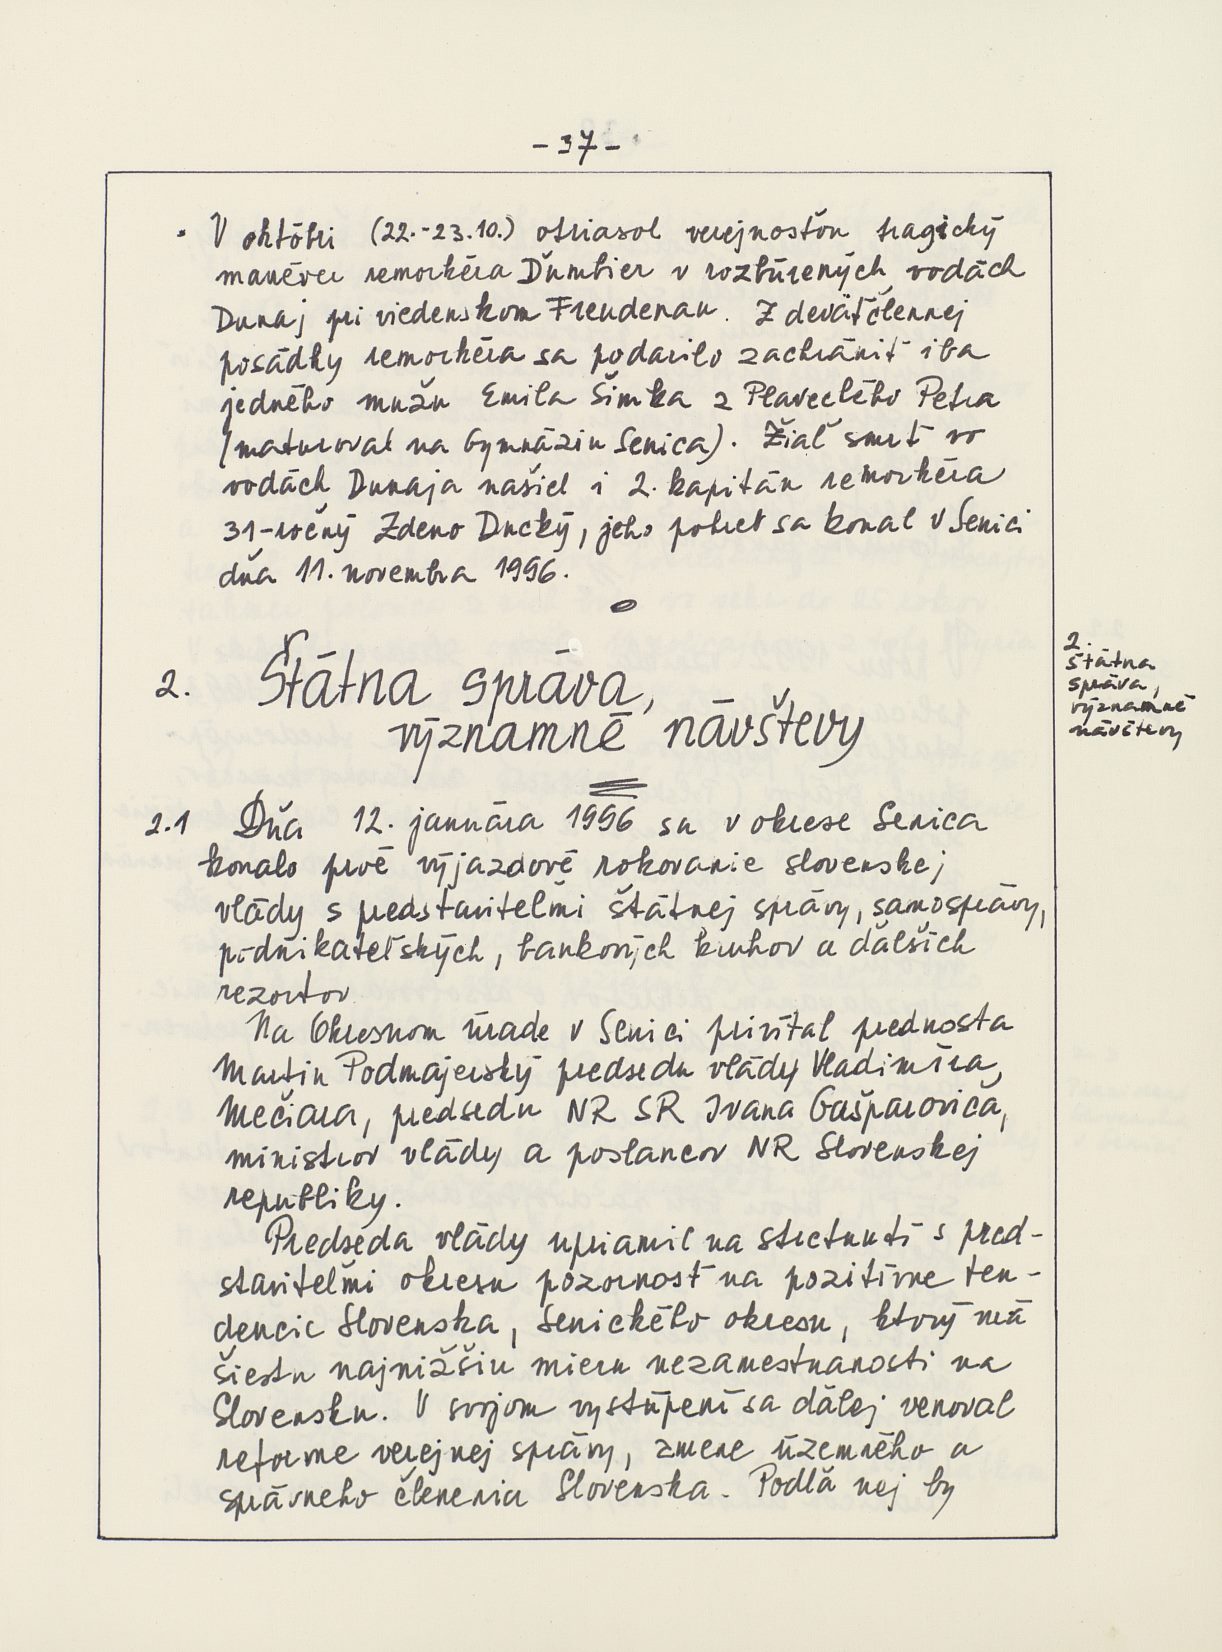 - 37 -
• V októbri (22.-23.10.) otriasol verejnosťou tragický
manéver remorkéra Ďumbier v rozbúrených vodách
Dunaj pri viedenskom Freudenau. Z deväťčlennej
posádky remorkéra sa podarilo zachrániť iba
jedného mužu Emila Šimka z Plaveckého Petra
(maturoval na Gymnáziu Senica). Žiaľ smrť vo
vodách Dunaja našiel i 2. kapitán remorkéra
31-ročný Zdeno Ducký, jeho pohreb sa konal v Senici
dňa 11. novembra 1996.
2. Štátna správa,
významné návštevy
2.
štátna
správa,
významné
návštevy
2.1 Dňa 12. januára 1996 sa v okrese Senica
konalo prvé výjazdové rokovanie slovenskej
vlády s predstaviteľmi štátnej správy, samosprávy,
podnikateľských, bankových kruhov a ďalších
rezortov
Na Okresnom úrade v Senici privítal prednosta
Martin Podmajerský predsedu vlády Vladimíra,
Mečiara, predsedu NR SR Ivana Gašparovica,
ministrov vlády a poslancov NR Slovenskej
republiky.
Predseda vlády upriamil na stretnutí s pred-
staviteľmi okresu pozornosť na pozitívne ten-
dencie Slovenska, Senického okresu, ktorý má
šiestu najnižšiu mieru nezamestnanosti na
Slovensku. V svojom vystúpení sa ďalej venoval
reforme verejnej správy, zmene územného a
správneho členenia Slovenska. Podľa nej by